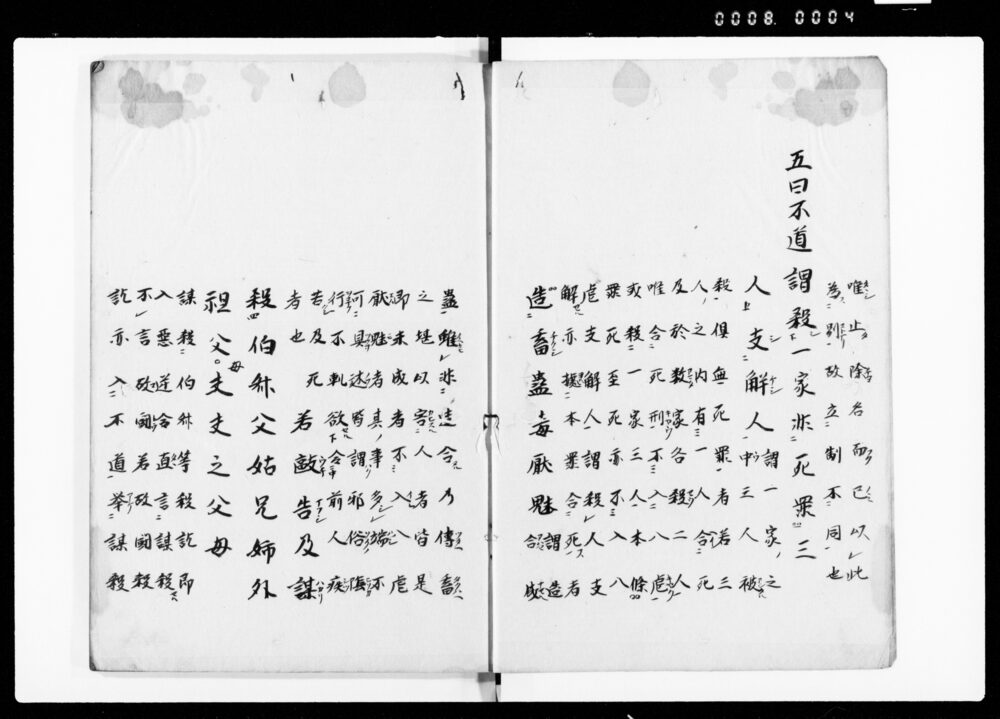 0008. 0004
唯止除名而已以此
為別故立制不同也
五曰不道謂殺一家非死罪三
人支解人謂一家之
中三人被
殺俱無死罪者若三
人之内有一人合死
及於數家各殺二人
唯合死刑不入八虐
或殺一家三人本條
罪至死亦不入八
虐支解人謂殺人支
解亦據本罪合死者
造畜蠱毒厭魅謂造
合成
蠱雖非造合乃傳畜
之堪以害人者皆是
即未成者不入八虐
厭魅者其事多端不
可具述皆謂邪俗陰
行不軌欲令前人疾
苦及死
者也
若敺告及謀
殺伯叔父姑兄姉外
祖父母夫夫之父母
謀殺伯叔等殺訖即
入惡逆今直言謀殺
不言故鬪若故鬪殺
訖亦入不道舉謀殺